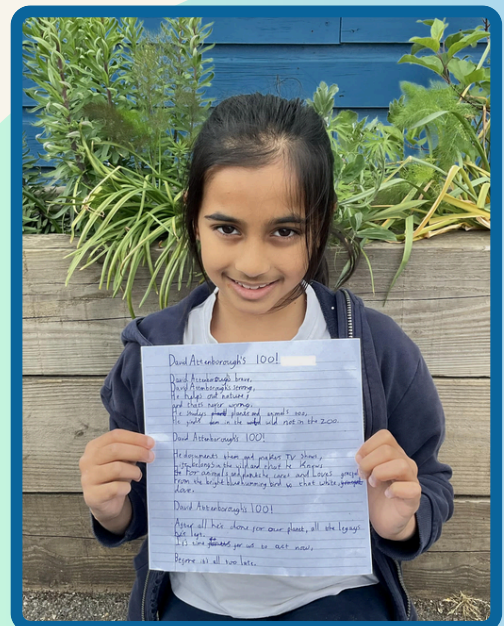 David Attenborough's 100!
David Attenborough's brave,
David Attenborough's strong,
He helps out nature,
and that's never wrong.
He studys plants and animals too,
He finds them in the wild not in the zoo.
David Attenborough's 100!
He documents them and makes TV shows,
belongs in the wild and that he knows.
For animals and plants he cares and loves
From the bright blue humming bird to that white
dove.
David Attenborough's 100!
After all he's done for our planet, all the legacy
he's left.
It's time for us to act now,
Before it's all too late.